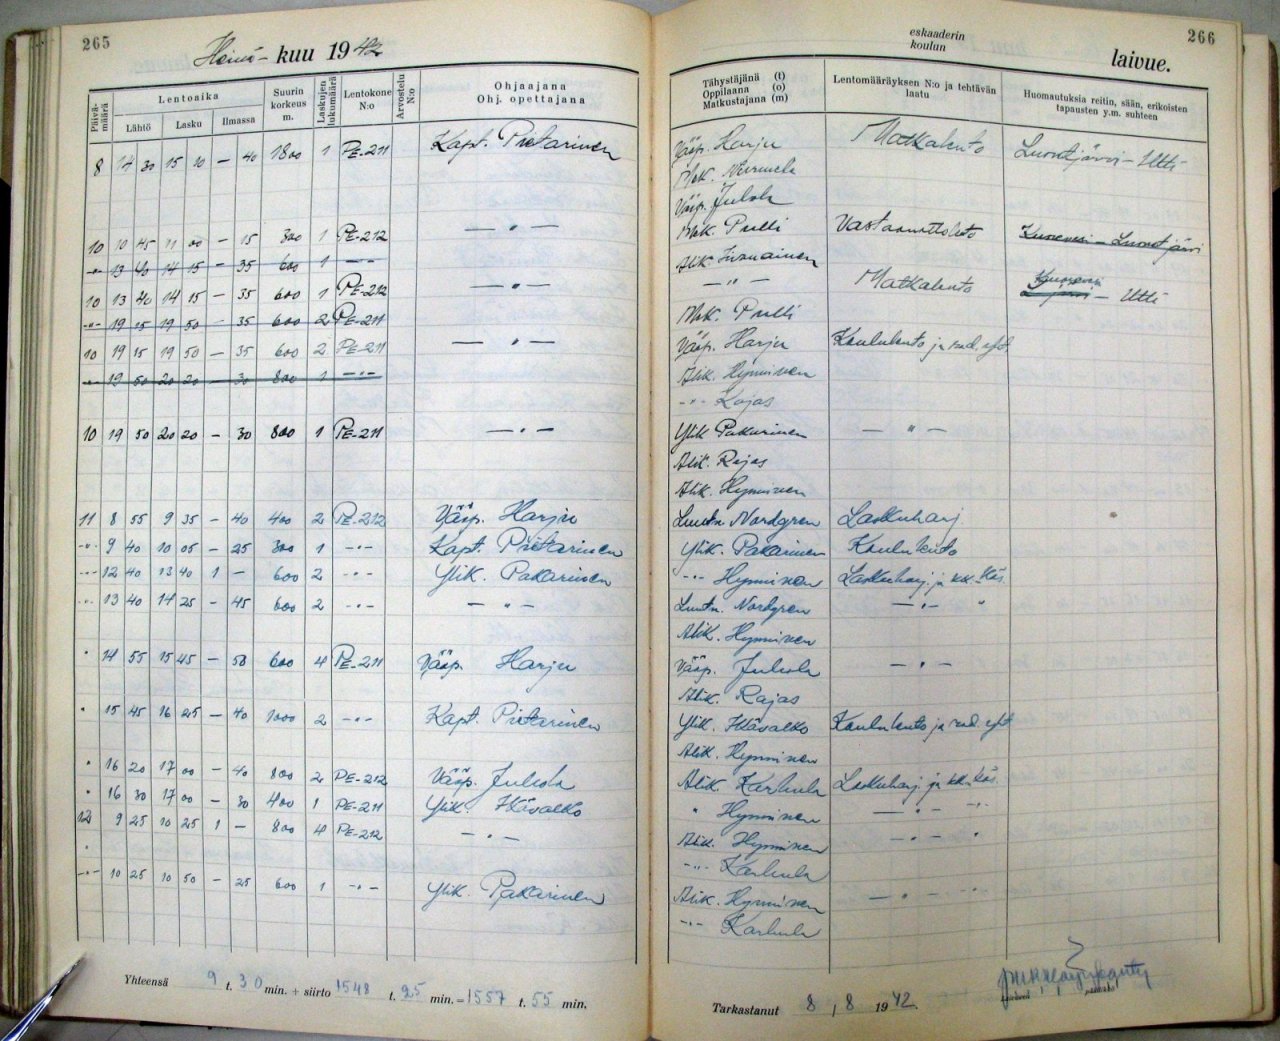 265
Heinä-kuu 1942
Päivämäärä
Lentoaika
Lähtö
Lasku
Ilmassa
Suurin korkeus m.
Laskujen lukumäärä
Lentokone N:o
Arvostelu N:o
Ohjaajana
Ohj. opettajana
8 14 30 15 10 – 40 1800 1 PE-211 Kapt. Pietarinen
10 10 45 11 00 – 15 300 1 PE-212 — " —
-"- 13 40 14 15 – 35 600 1 -"-
10 13 40 14 15 – 35 600 1 PE-212 — " —
-"- 19 15 19 50 – 35 600 2 PE-211
10 19 15 19 50 – 35 600 2 PE-211 — " —
-"- 19 50 20 20 – 30 800 1 -"-
10 19 50 20 20 – 30 800 1 PE-211 — " —
11 8 55 9 35 – 40 400 2 PE-212 Vääp. Harju
-"- 9 40 10 05 – 25 300 1 -"- Kapt. Pietarinen
-"- 12 40 13 40 1 – 600 2 -"- Ylik. Pakarinen
-"- 13 40 14 25 – 45 600 2 -"- — " —
" 14 55 15 45 – 50 600 4 PE-211 Vääp. Harju
" 15 45 16 25 – 40 1000 2 -"- Kapt. Pietarinen
" 16 20 17 00 – 40 800 2 PE-212 Vääp. Juhola
" 16 30 17 00 – 30 400 1 PE-211 Ylik. Itävalko
12 9 25 10 25 1 – 800 4 PE-212 — " —
-"- 10 25 10 50 – 25 600 1 -"- Ylik. Pakarinen
Yhteensä 9 t. 30 min. + siirto 1548 t. 25 min. = 1557 t. 55 min.
266
eskaaderin
koulun
laivue.
Tähystäjänä (t)
Oppilaana (o)
Matkustajana (m)
Lentomääräyksen N:o ja tehtävän laatu
Huomautuksia reitin, sään, erikoisten tapausten y.m. suhteen
Vääp. Harju Matkalento Luonetjärvi – Utti
Mek. Nurmela
Vääp. Juhola
Mek. Pulli
Alik. — " —
Matkalento – Utti
Mek. Pulli
Vääp. Harju Koululento ja rad.
Alik. Hynninen
-"- Rajas
Ylik. Pakarinen — " —
Alik. Rajas
Alik. Hynninen
Luutn. Nordgren Laskuharj.
Ylik. Pakarinen Koululento
-"- Hynninen Laskuharj. ja kk.
Luutn. Nordgren — " — "
Alik. Hynninen
Vääp. Juhola — " —
Alik. Rajas
Ylik. Itävalko Koululento ja rad.
Alik. Hynninen
Alik. Karhula Laskuharj. ja kk.
" Hynninen — " — -"-
Alik. Hynninen — " — "
-"- Karhula
Alik. Hynninen — " — "
-"- Karhula
Tarkastanut 8 / 8 1942.